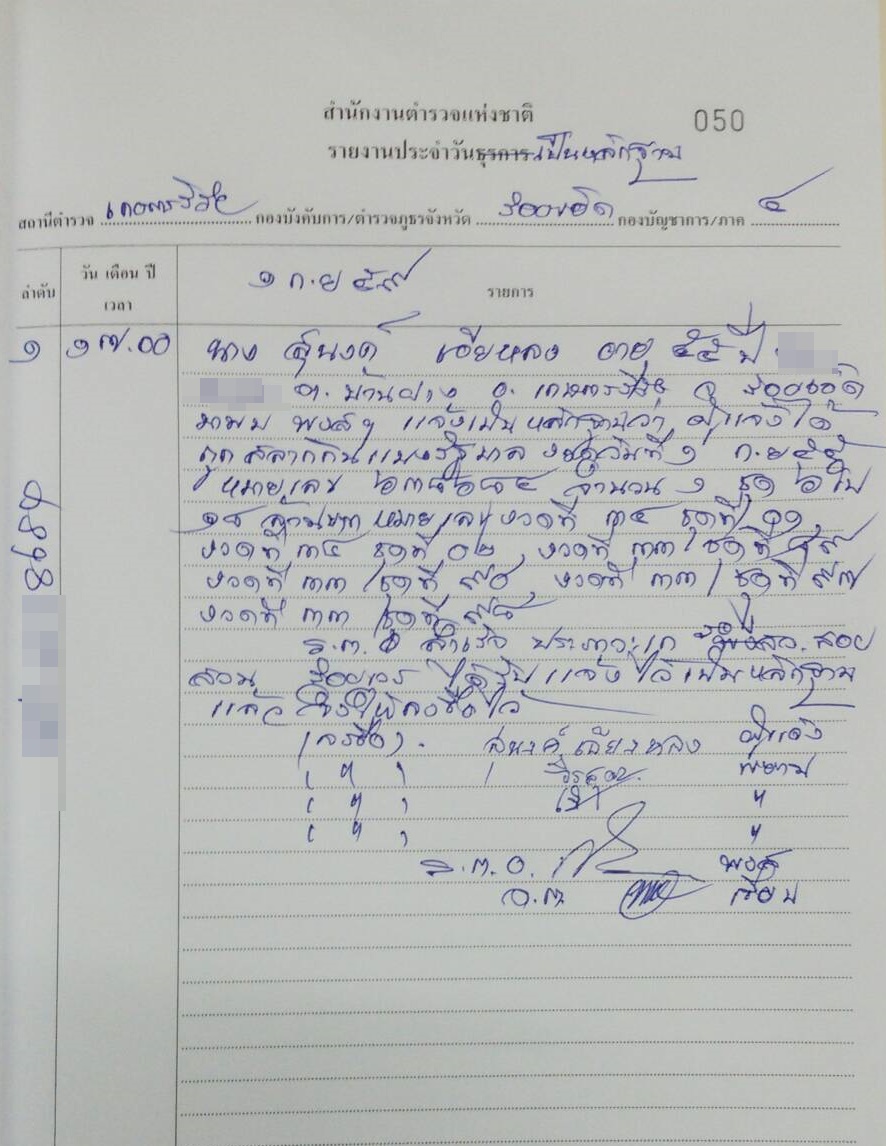 สำนักงานตำรวจแห่งชาติ
050
รายงานประจำวันธุรการ เป็นหลักฐาน
สถานีตำรวจ เกษตรวิสัย กองบังคับการ/ตำรวจภูธรจังหวัด ร้อยเอ็ด กองบัญชาการ/ภาค ๔
ลำดับ วัน เดือน ปี เวลา ๑ ก.ย ๕๙ รายการ
๑ ๑๗.00 นาง สุนงค์ เฉียงหลง อายุ ๕๕ ปี
ต. บ้านฝาง อ. เกษตรวิสัย จ ร้อยเอ็ด
มาพบ พงส ฯ แจ้งเป็นหลักฐานว่า ผู้แจ้งได้
ถูกสลากกินแบ่งรัฐบาล งวดวันที่ ๑ ก.ย ๕๙
หมายเลข ๖๓๘๖๘๔ จำนวน ๑ ชุด ๖ ใบ
๑๘ ล้านบาท หมายเลข งวดที่ ๓๔ ชุดที่ ๐๑,
งวดที่ ๓๔ ชุดที่ ๐๒, งวดที่ ๓๓ ชุดที่ ๔๙
งวดที่ ๓๓ ชุดที่ ๙๐, งวดที่ ๓๓ ชุดที่ ๙๗
งวดที่ ๓๓ ชุดที่ ๙๘
ร.ต.อ สำเร็จ รอง สว. สอบ
สวน ร้อยเวร ได้รับแจ้งไว้เป็นหลักฐาน
แล้ว จึงให้ลงชื่อไว้
(ลงชื่อ) สุนงค์ เฉียงหลง ผู้แจ้ง
( ฯ ) พยาน
( ฯ ) "
( ฯ ) "
ร.ต.อ. พงส
ด.ต. เขียน